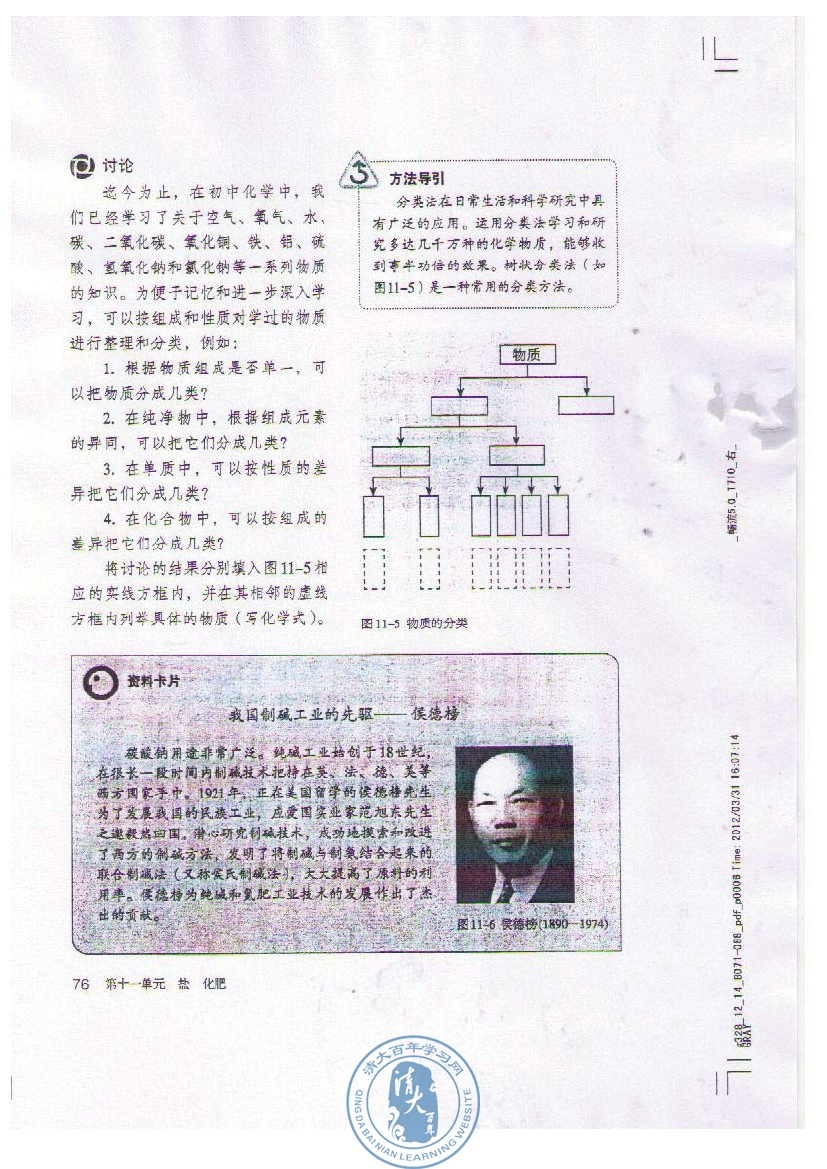 讨论
迄今为止，在初中化学中，我
们已经学习了关于空气、氧气、水、
碳、二氧化碳、氧化铜、铁、铝、硫
酸、氢氧化钠和氯化钠等一系列物质
的知识。为便于记忆和进一步深入学
习，可以按组成和性质对学过的物质
进行整理和分类，例如：
1. 根据物质组成是否单一，可
以把物质分成几类？
2. 在纯净物中，根据组成元素
的异同，可以把它们分成几类？
3. 在单质中，可以按性质的差
异把它们分成几类？
4. 在化合物中，可以按组成的
差异把它们分成几类？
将讨论的结果分别填入图11-5相
应的实线方框内，并在其相邻的虚线
方框内列举具体的物质（写化学式）。
方法导引
分类法在日常生活和科学研究中具
有广泛的应用。运用分类法学习和研
究多达几千万种的化学物质，能够收
到事半功倍的效果。树状分类法（如
图11-5）是一种常用的分类方法。
物质
图11-5 物质的分类
资料卡片
我国制碱工业的先驱——侯德榜
碳酸钠用途非常广泛。纯碱工业始创于18世纪，
在很长一段时间内制碱技术把持在英、法、德、美等
西方国家手中。1921年，正在美国留学的侯德榜先生
为了发展我国的民族工业，应爱国实业家范旭东先生
之邀毅然回国。潜心研究制碱技术，成功地摸索和改进
了西方的制碱方法，发明了将制碱与制氨结合起来的
联合制碱法（又称侯氏制碱法），大大提高了原料的利
用率。侯德榜为纯碱和氮肥工业技术的发展作出了杰
出的贡献。
图11-6 侯德榜(1890—1974)
76 第十一单元 盐 化肥
_畅流5.0_1710_右_
g328_12_14_B071-088_pdf_p0006 Time: 2012/03/31 16:07:14
GRAY
清大百年学习网
清大百年
QING DA BAI NIAN LEARNING WEBSITE